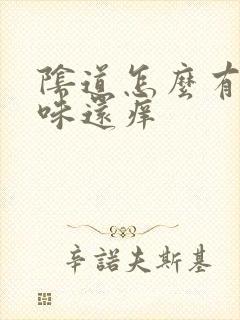 陰道怎麼有
味還痒
辛諾夫斯基